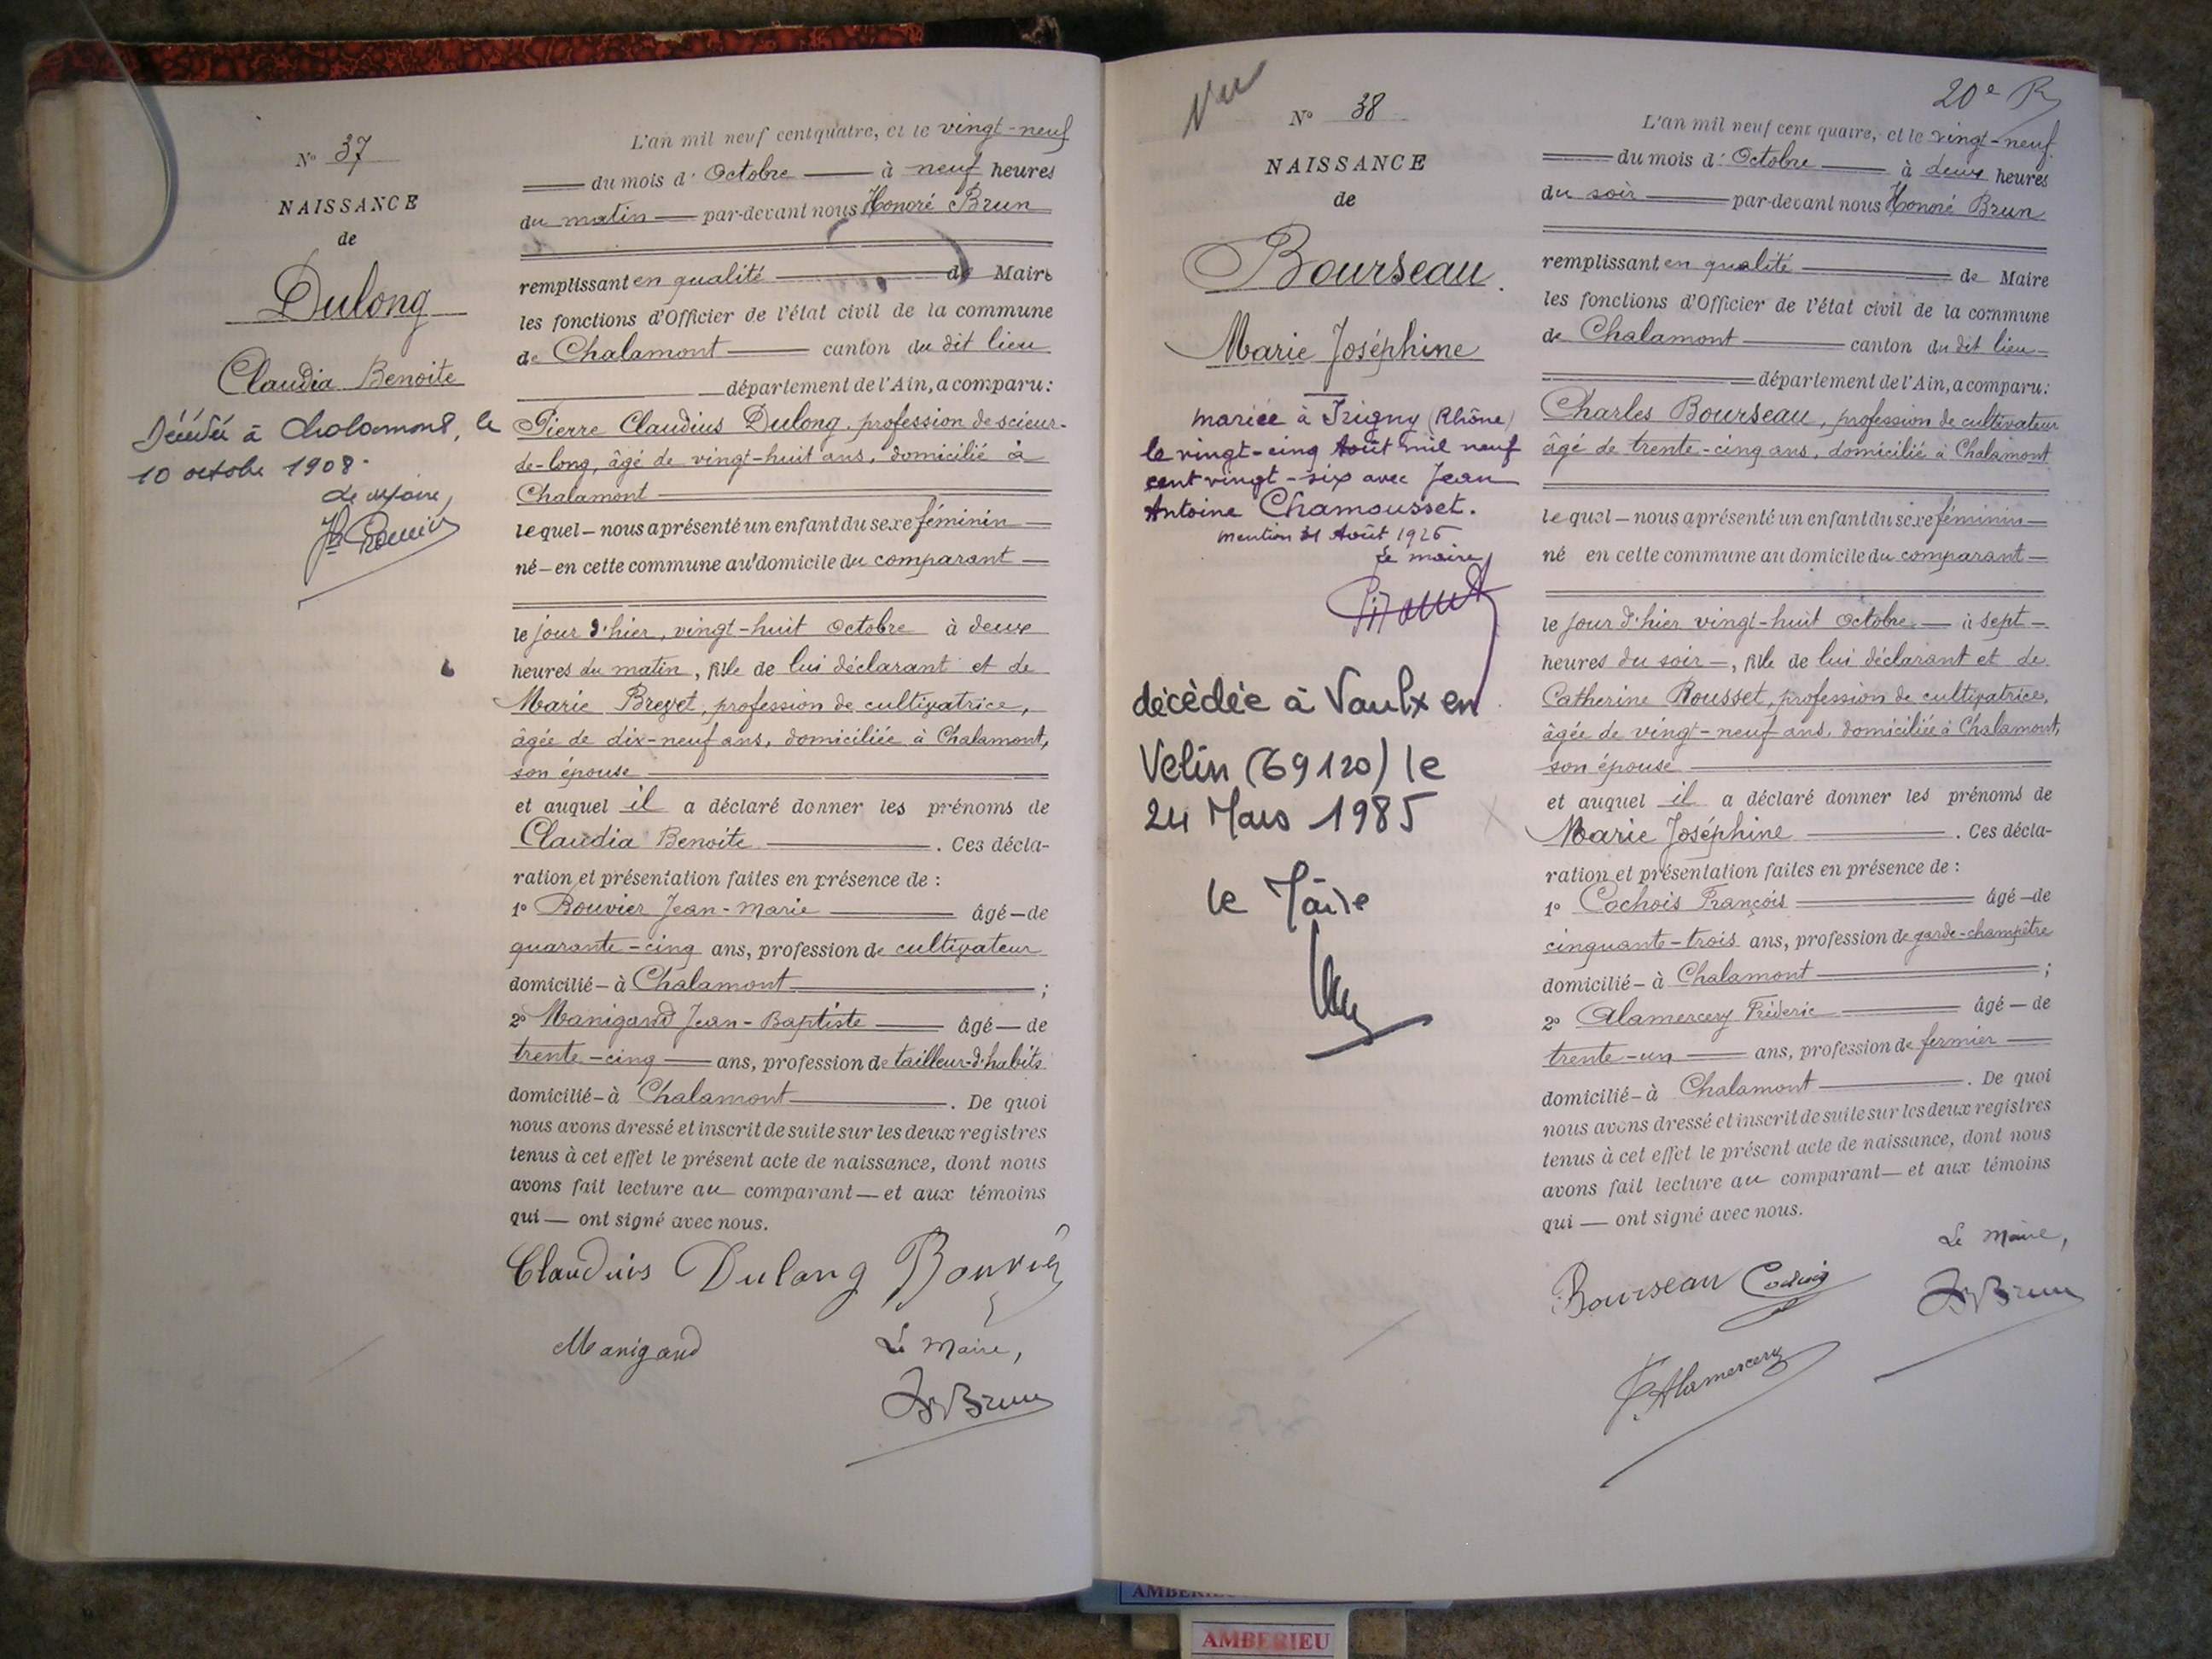 N° 37
NAISSANCE
de
Dulong
Claudia Benoite
Décédée à Chalamont, le
10 octobre 1908.
Le Maire,
L'an mil neuf cent quatre, et le vingt-neuf
du mois d' Octobre à neuf heures
du matin par-devant nous Honoré Brun
remplissant en qualité de Maire
les fonctions d'Officier de l'état civil de la commune
de Chalamont canton du dit lieu
département de l'Ain, a comparu:
Pierre Claudius Dulong, profession de scieur-
de-long, âgé de vingt-huit ans, domicilié à
Chalamont
lequel nous a présenté un enfant du sexe féminin
né en cette commune au domicile du comparant
le jour d'hier, vingt-huit Octobre à deux
heures du matin, fille de lui déclarant et de
Marie Brevet, profession de cultivatrice,
âgée de dix-neuf ans, domiciliée à Chalamont,
son épouse
et auquel il a déclaré donner les prénoms de
Claudia Benoite. Ces décla-
ration et présentation faites en présence de :
1° Bouvier Jean-Marie âgé de
quarante-cinq ans, profession de cultivateur
domicilié à Chalamont ;
2° Manigand Jean-Baptiste âgé de
trente-cinq ans, profession de tailleur-d'habits
domicilié à Chalamont. De quoi
nous avons dressé et inscrit de suite sur les deux registres
tenus à cet effet le présent acte de naissance, dont nous
avons fait lecture au comparant et aux témoins
qui ont signé avec nous.
Claudius Dulong Bouvier
Manigand Le Maire,
H Brun
Vu
N° 38
NAISSANCE
de
Bourseau.
Marie Joséphine
mariée à Irigny (Rhône)
le vingt-cinq Août mil neuf
cent vingt-six avec Jean
Antoine Chamousset.
Mention 31 Août 1926
Le maire
décédée à Vaulx en
Velin (69120) le
24 Mars 1985
le Maire
20e
L'an mil neuf cent quatre, et le vingt-neuf
du mois d' Octobre à deux heures
du soir par-devant nous Honoré Brun
remplissant en qualité de Maire
les fonctions d'Officier de l'état civil de la commune
de Chalamont canton du dit lieu
département de l'Ain, a comparu:
Charles Bourseau, profession de cultivateur
âgé de trente-cinq ans, domicilié à Chalamont
lequel nous a présenté un enfant du sexe féminin
né en cette commune au domicile du comparant
le jour d'hier vingt-huit Octobre à sept
heures du soir, fille de lui déclarant et de
Catherine Rousset, profession de cultivatrice,
âgée de vingt-neuf ans, domiciliée à Chalamont,
son épouse
et auquel il a déclaré donner les prénoms de
Marie Joséphine. Ces décla-
ration et présentation faites en présence de :
1° Cochois François âgé de
cinquante-trois ans, profession de garde-champêtre
domicilié à Chalamont ;
2° Alamercery Fréderic âgé de
trente-un ans, profession de fermier
domicilié à Chalamont. De quoi
nous avons dressé et inscrit de suite sur les deux registres
tenus à cet effet le présent acte de naissance, dont nous
avons fait lecture au comparant et aux témoins
qui ont signé avec nous.
Le Maire,
Bourseau H Brun
F. Alamercery
AMBERIEU